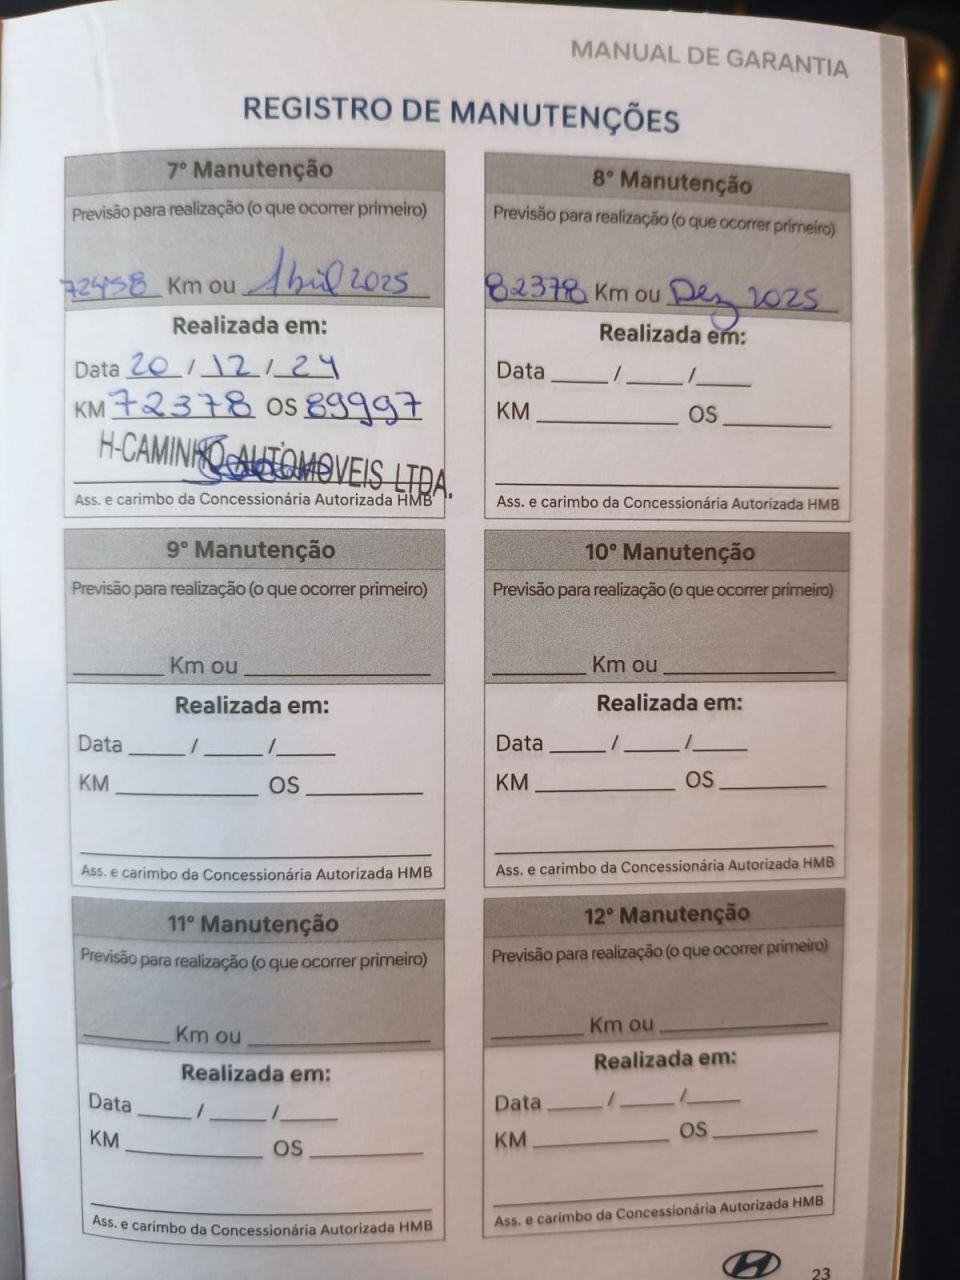 MANUAL DE GARANTIA
REGISTRO DE MANUTENÇÕES
7º Manutenção
Previsão para realização (o que ocorrer primeiro)
72458 Km ou Abril 2025
Realizada em:
Data 20 / 12 / 24
KM 72378 OS 89997
H-CAMINHO AUTOMOVEIS LTDA.
Ass. e carimbo da Concessionária Autorizada HMB
8º Manutenção
Previsão para realização (o que ocorrer primeiro)
82378 Km ou Dez 2025
Realizada em:
Data ____ / ____ / ____
KM ________ OS ________
Ass. e carimbo da Concessionária Autorizada HMB
9º Manutenção
Previsão para realização (o que ocorrer primeiro)
________ Km ou ________
Realizada em:
Data ____ / ____ / ____
KM ________ OS ________
Ass. e carimbo da Concessionária Autorizada HMB
10º Manutenção
Previsão para realização (o que ocorrer primeiro)
________ Km ou ________
Realizada em:
Data ____ / ____ / ____
KM ________ OS ________
Ass. e carimbo da Concessionária Autorizada HMB
11º Manutenção
Previsão para realização (o que ocorrer primeiro)
________ Km ou ________
Realizada em:
Data ____ / ____ / ____
KM ________ OS ________
Ass. e carimbo da Concessionária Autorizada HMB
12º Manutenção
Previsão para realização (o que ocorrer primeiro)
________ Km ou ________
Realizada em:
Data ____ / ____ / ____
KM ________ OS ________
Ass. e carimbo da Concessionária Autorizada HMB
23